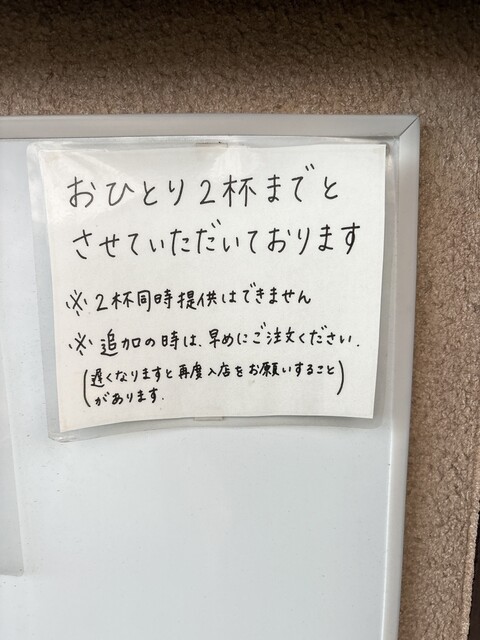 おひとり2杯までと
させていただいております
※2杯同時提供はできません
※追加の時は、早めにご注文ください.
(遅くなりますと再度入店をお願いすること
があります.)